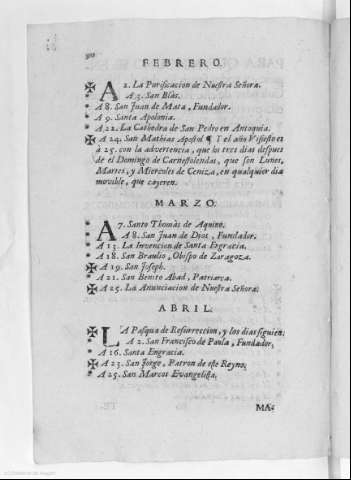 FEBRERO.
✠ A 2. La Purificacion de Nuestra Señora.
* A 3. San Blàs.
* A 8. San Juan de Mata, Fundador.
* A 9. Santa Apolonia.
* A 22. La Cathedra de San Pedro en Antoquia.
✠ A 24. San Mathias Apostol ¶ Y el año Visiesto es
à 25. con la advertencia, que los tres dias despues
de el Domingo de Carnestolendas, que son Lunes,
Martes, y Miercoles de Ceniza, en qualquier dia
movible, que cayeren.
MARZO.
* A 7. Santo Thomàs de Aquino.
* A 8. San Juan de Dios, Fundador.
* A 13. La Invencion de Santa Engracia.
* A 18. San Braulio, Obispo de Zaragoza.
✠ A 19. San Joseph.
* A 21. San Benito Abad, Patriarca.
✠ A 25. La Anunciacion de Nuestra Señora.
ABRIL.
✠ LA Pasqua de Resurreccion, y los dias siguien.
* A 2. San Francisco de Paula, Fundador,
* A 16. Santa Engracia.
✠ A 23. San Jorge, Patron de este Reyno,
* A 25. San Marcos Evangelista,
MA-